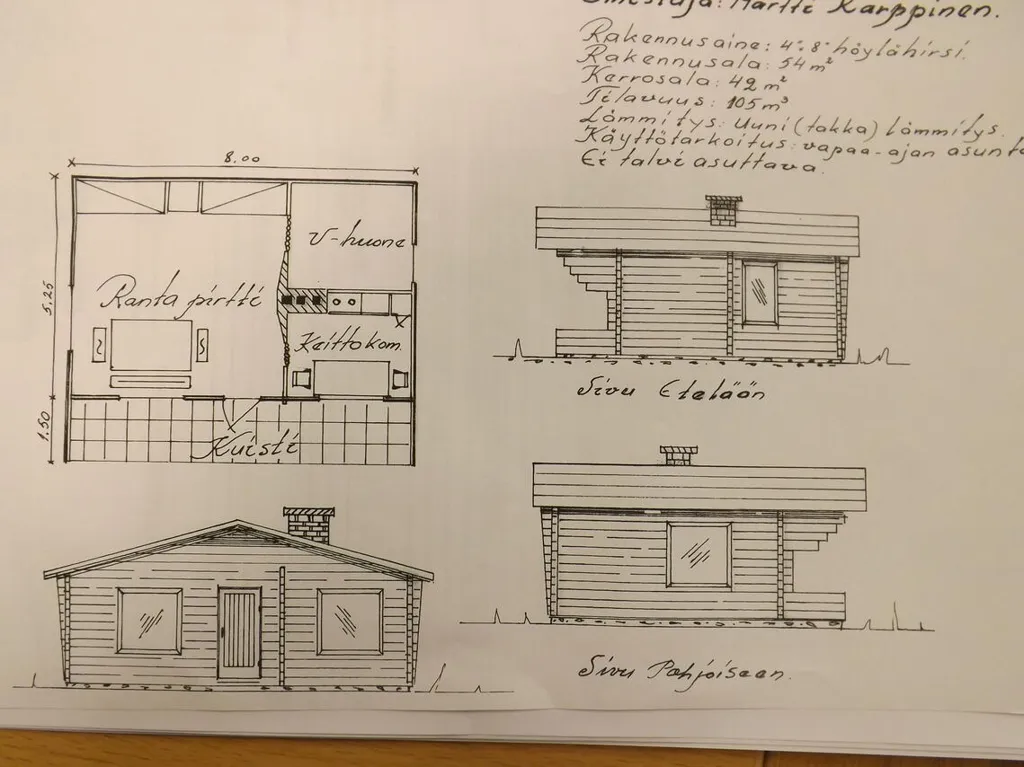 Omistaja: Martti Karppinen.
Rakennusaine: 4"x8" höylähirsi.
Rakennusala: 54 m²
Kerrosala: 42 m²
Tilavuus: 105 m³
Lämmitys: Uuni (takka) lämmitys.
Käyttötarkoitus: vapaa-ajan asunto
Ei talvi asuttava.
8.00
V-huone
Ranta pirtti
5.25
Keittokom.
1.50
Kuisti
Sivu Etelään
Sivu Pohjoiseen.